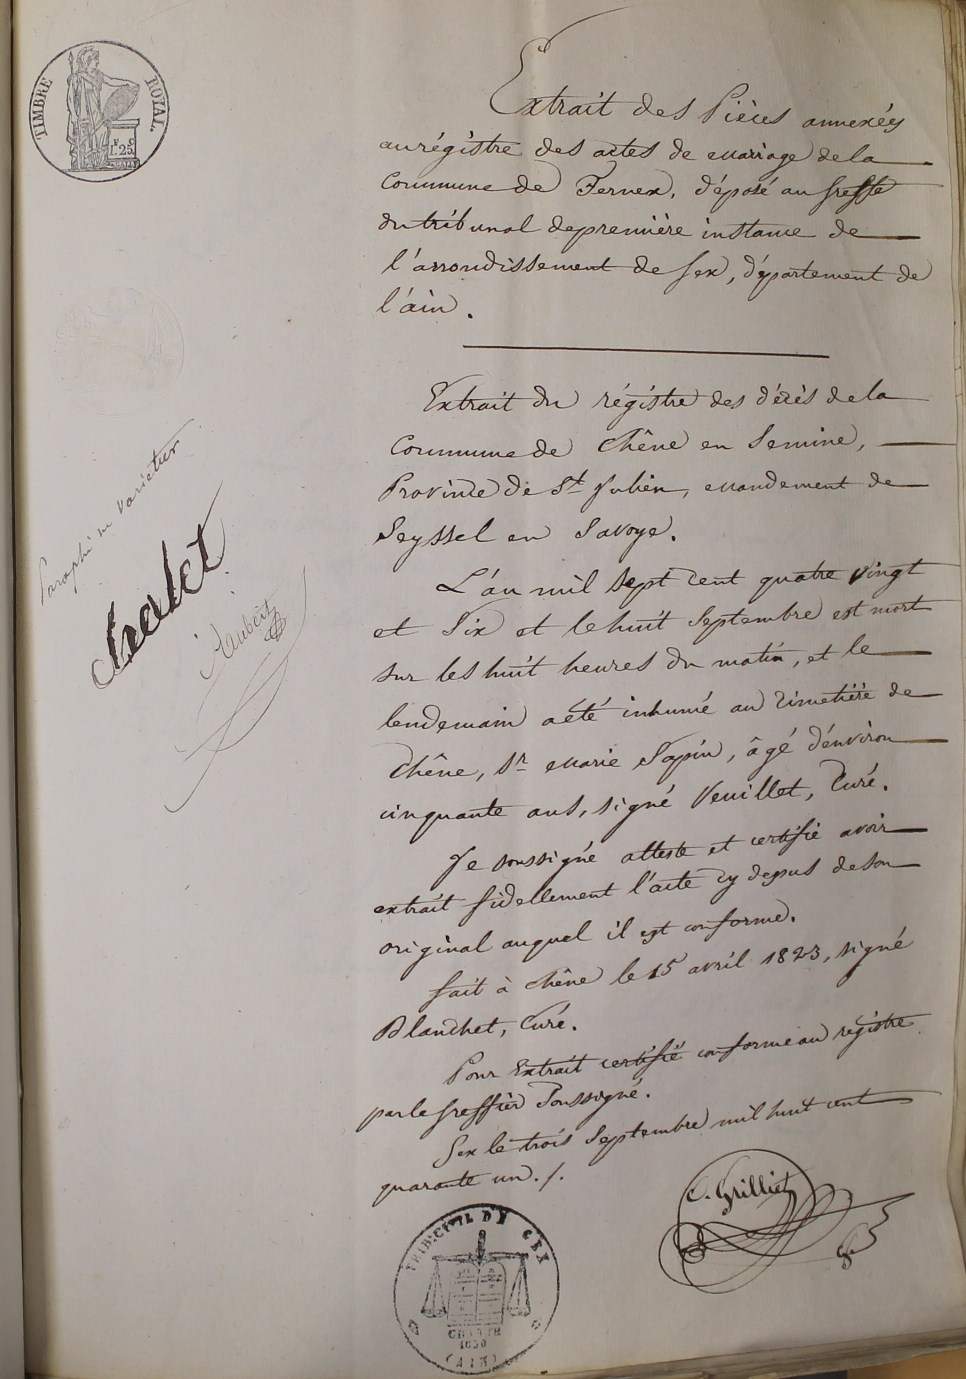 TIMBRE ROYAL
1 F. 25 C.
Extrait des Pièces annexées
au régistre des actes de mariage de la
Commune de Fernex, déposé au Greffe
du tribunal de première instance de
l'arrondissement de Gex, département de
l'ain.
Extrait du régistre des décès de la
Commune de Chêne en Semine,
Province de St Julien, mandement de
Seyssel en Savoye.
L'an mil sept cent quatre vingt
et six et le huit Septembre est mort
sur les huit heures du matin, et le
lendemain a été inhumé au cimetière de
Chêne, Sr. Marie Sapin, âgé d'environ
cinquante ans, signé Veuillet, Curé.
Je soussigné atteste et certifie avoir
extrait fidellement l'acte cy dessus de son
original auquel il est conforme.
fait à Chêne le 15 avril 1823, signé
Blanchet, Curé.
Pour Extrait certifié conforme au régistre
par le Greffier Soussigné.
Gex le trois Septembre mil huit cent
quarante un ./.
C. Grilliet
Paraphé ne varietur
TRIB. CIVIL DE GEX
CHARTE
1830
(AIN)